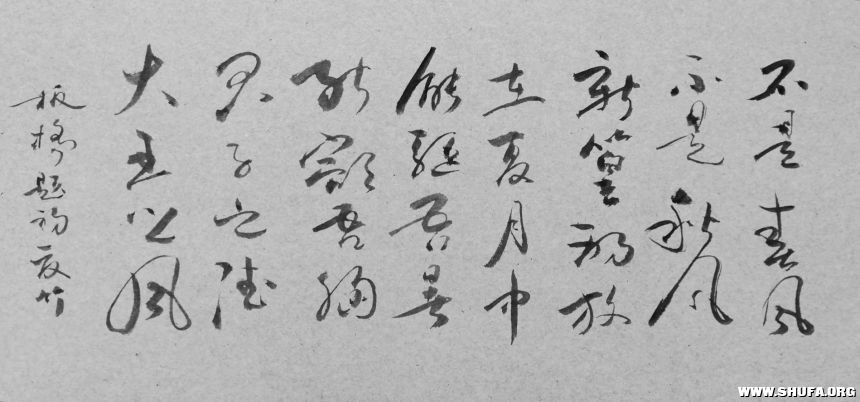 不是春風
不是秋風
新篁初放
在夏月中
能驅吾暑
能豁吾胸
君子之德
大王之風
板橋題初夏竹
WWW.SHUFA.ORG